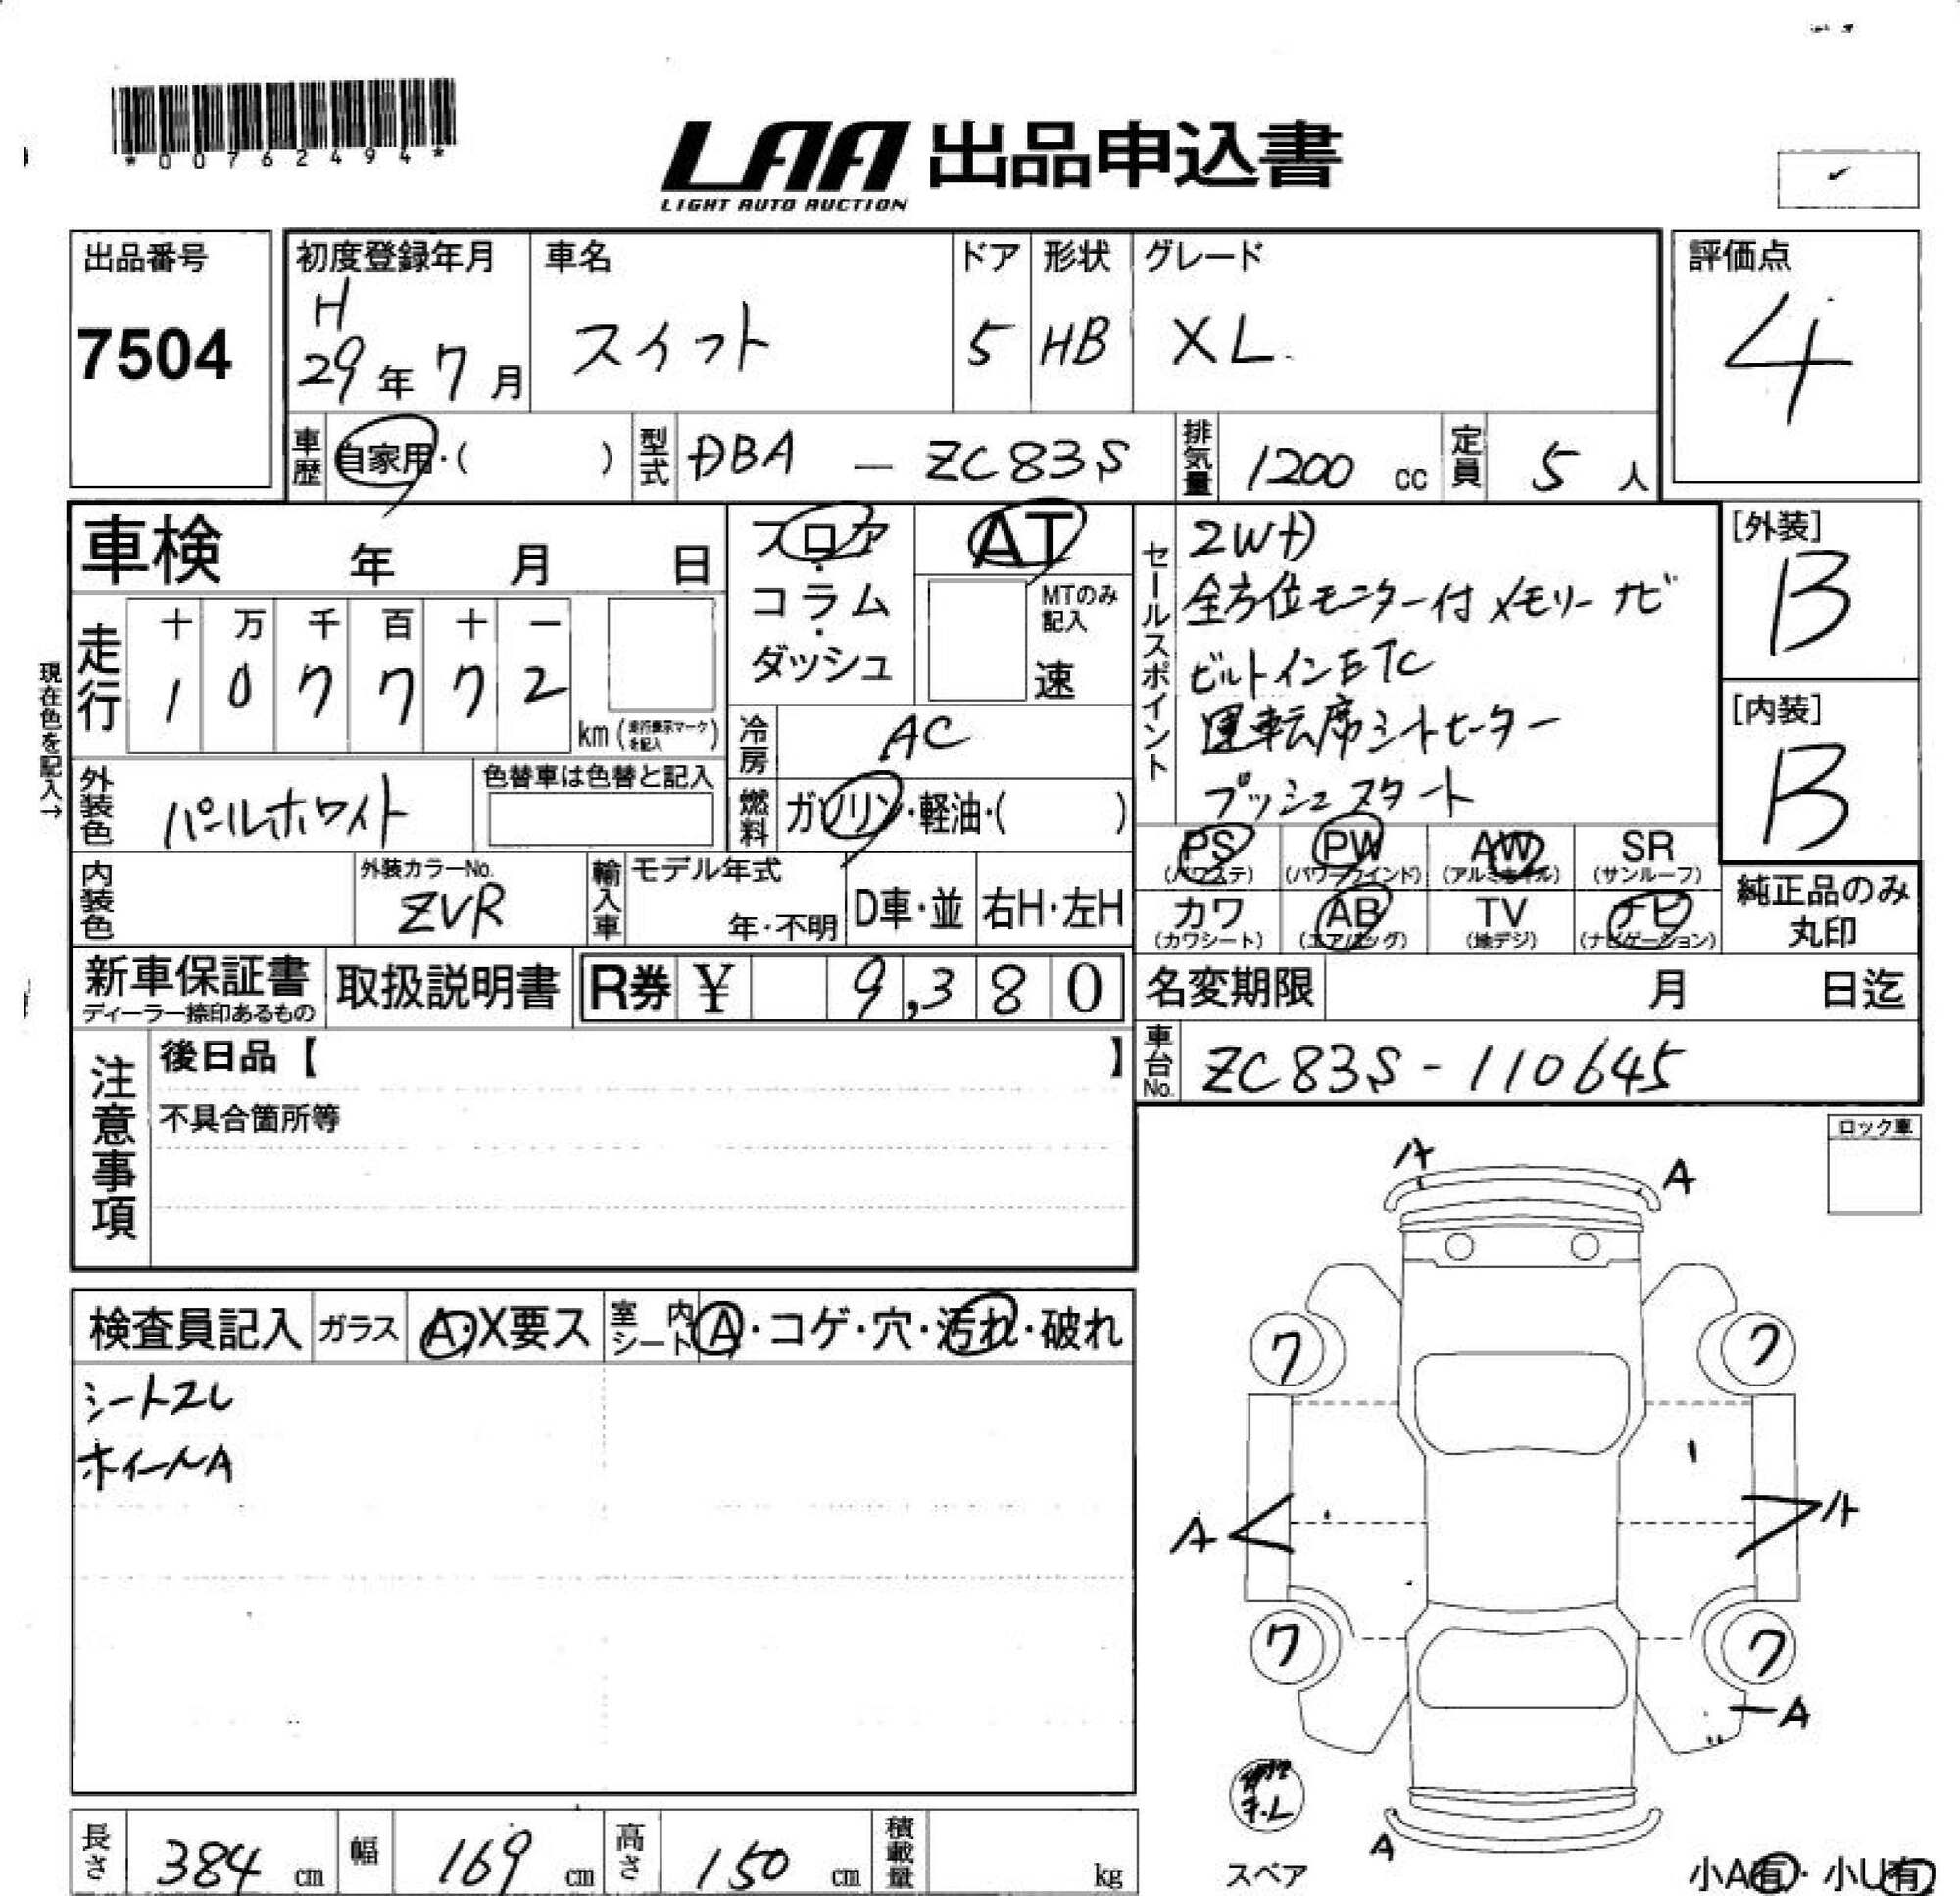 *00762494*
LAA 出品申込書
LIGHT AUTO AUCTION
出品番号
7504
初度登録年月
H
29年7月
車名
スイフト
ドア
5
形状
HB
グレード
XL
評価点
4
車歴 自家用・( )
型式 DBA - ZC83S
排気量 1200 cc
定員 5 人
車検 年 月 日
フロア・コラム・ダッシュ
AT
MTのみ記入
速
現在色を記入→
走行
十 万 千 百 十 一
1 0 7 7 7 2
km (走行表示マークを記入)
冷房 AC
外装色 パールホワイト
色替車は色替と記入
燃料 ガソリン・軽油・( )
内装色
外装カラーNo.
ZVR
輸入車
モデル年式
年・不明
D車・並
右H・左H
セールスポイント
2WD
全方位モニター付メモリーナビ
ビルトインETC
運転席シートヒーター
プッシュスタート
[外装]
B
[内装]
B
PS (パワステ)
PW (パワーウインド)
AW (アルミホイル)
SR (サンルーフ)
カワ (カワシート)
AB (エアバッグ)
TV (地デジ)
ナビ (ナビゲーション)
純正品のみ
丸印
新車保証書
ディーラー捺印あるもの
取扱説明書
R券 ¥ 9,380
名変期限 月 日迄
車台No. ZC83S-110645
注意事項
後日品【 】
不具合箇所等
ロック車
検査員記入
ガラス A・X要ス
室内シート A・コゲ・穴・汚れ・破れ
シートスレ
ホイールA
A
A
ワ
ワ
A
A
ワ
ワ
A
A
スペア
小A有・小U有
長さ 384 cm
幅 169 cm
高さ 150 cm
積載量 kg